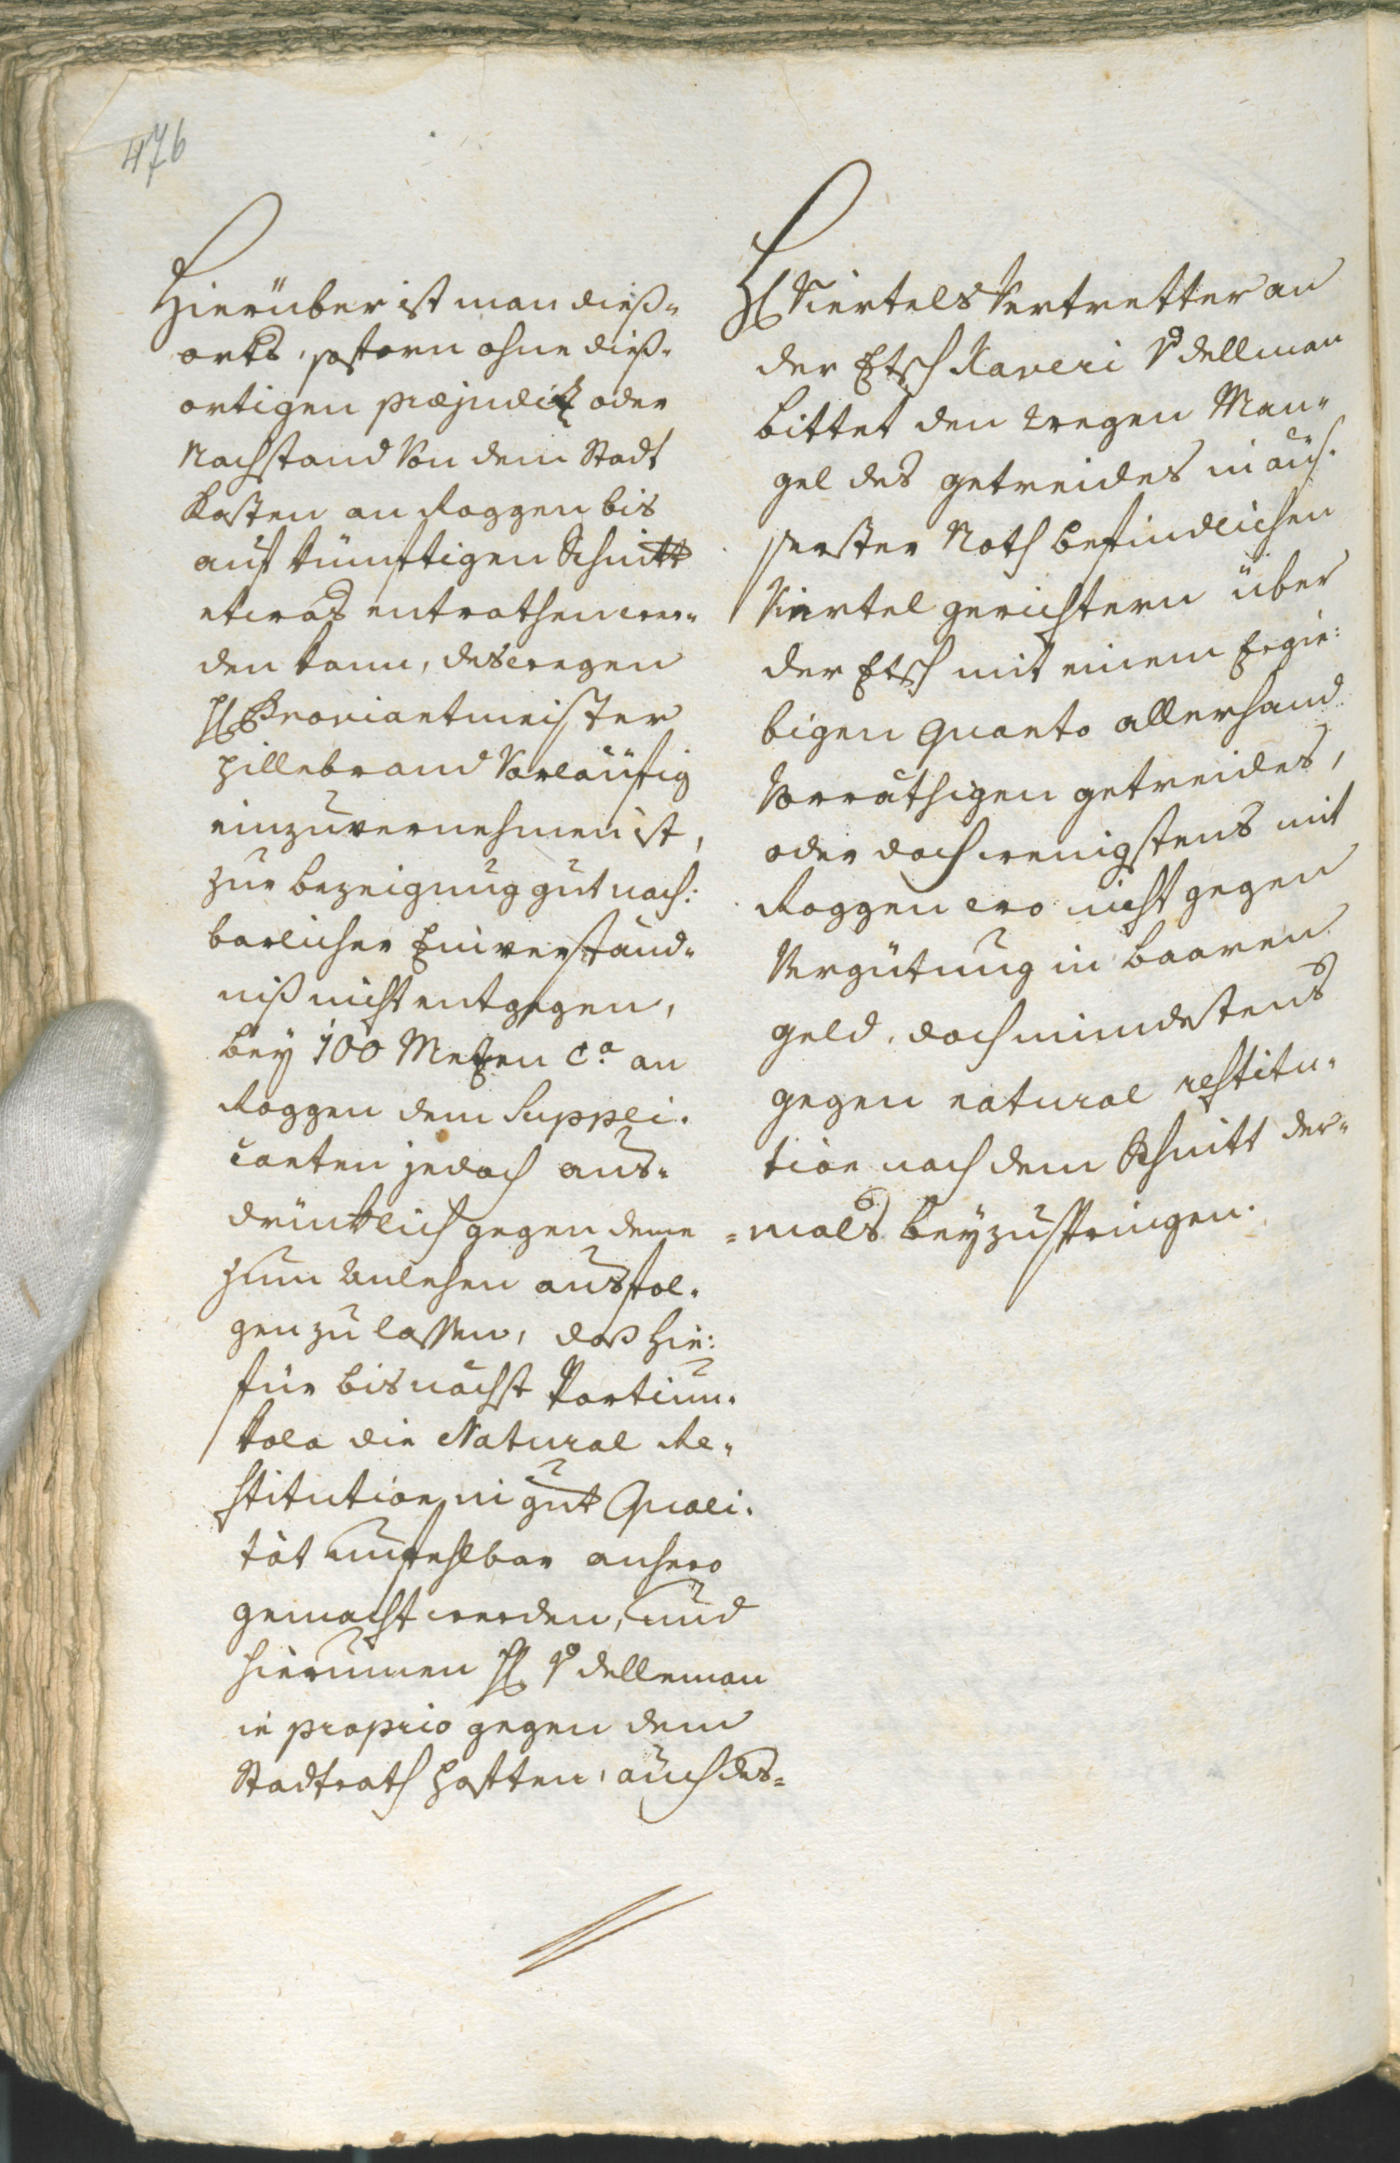 476
Hierüber ist man dieß=
orts, sofern ohne dieß=
ortigen præjudiz oder
Nachstand von dem Stadt
Kasten an Roggen bis
auf künftigen Schnitt
etwas entrathen wer=
den kann, deswegen
H Proviantmeister
Hillebrand vorläufig
einzuvernehmen ist,
zur bezeigung gut nach:
barlicher Einverständ=
niß nicht entgegen,
bey 100 Metzen ca an
Roggen dem Suppli.
canten jedoch aus=
drücklich gegen deme
zum Anlehen ausfol.
gen zu lassen, daß hie:
für bis nächst Portiun.
kola die Natural Re=
stitution in gut Quali.
tät unfehlbar anhero
gemacht werden, und
hierumen H v delleman
in proprio gegen dem
Stadtrath haften, auch des=
H Viertels Vertretter an
der Etsch Xaveri v dellman
bittet den wegen Man=
gel des getreides in äus.
serster Noth befindlichen
Viertel gerichtern über
der Etsch mit einem Ergie:
bigen Quanto allerhand
Vorräthigen getreides,
oder doch wenigstens mit
Roggen wo nicht gegen
Vergütung in baaren
geld, doch mindestens
gegen natural restitu=
tion nach dem Schnitt der=
=mals beyzuspringen.